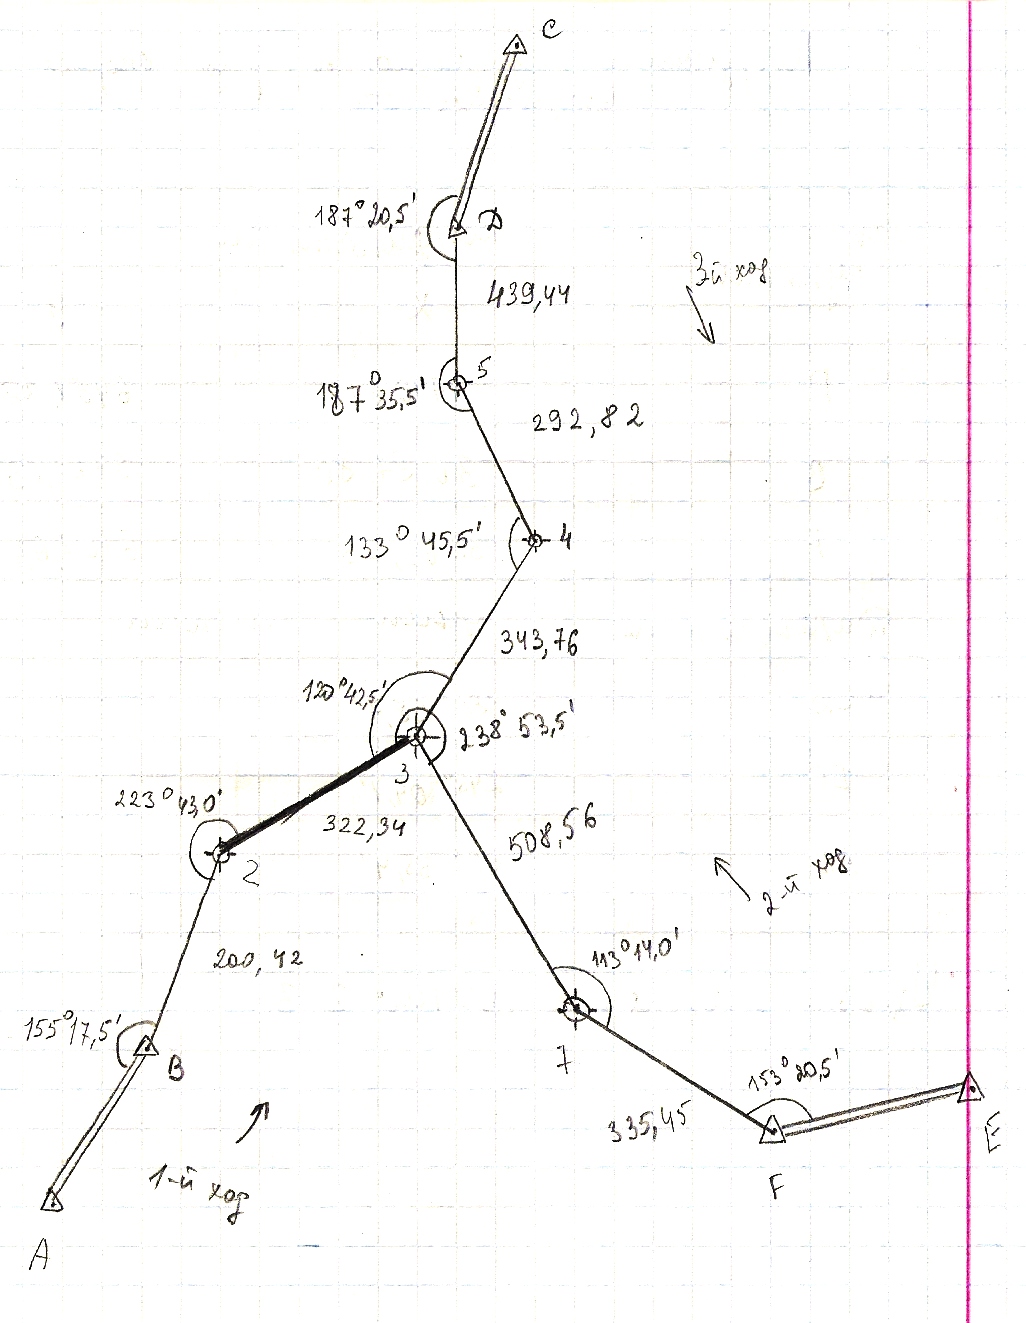 C
187°20,5'
D
439,44
3й ход
5
187°35,5'
292,82
133° 45,5'
4
343,76
120°42,5'
238° 53,5'
3
223°43,0'
322,34
508,56
2
2-й ход
200,42
113°14,0'
155°17,5'
B
7
153°20,5'
335,45
E
1-й ход
F
A